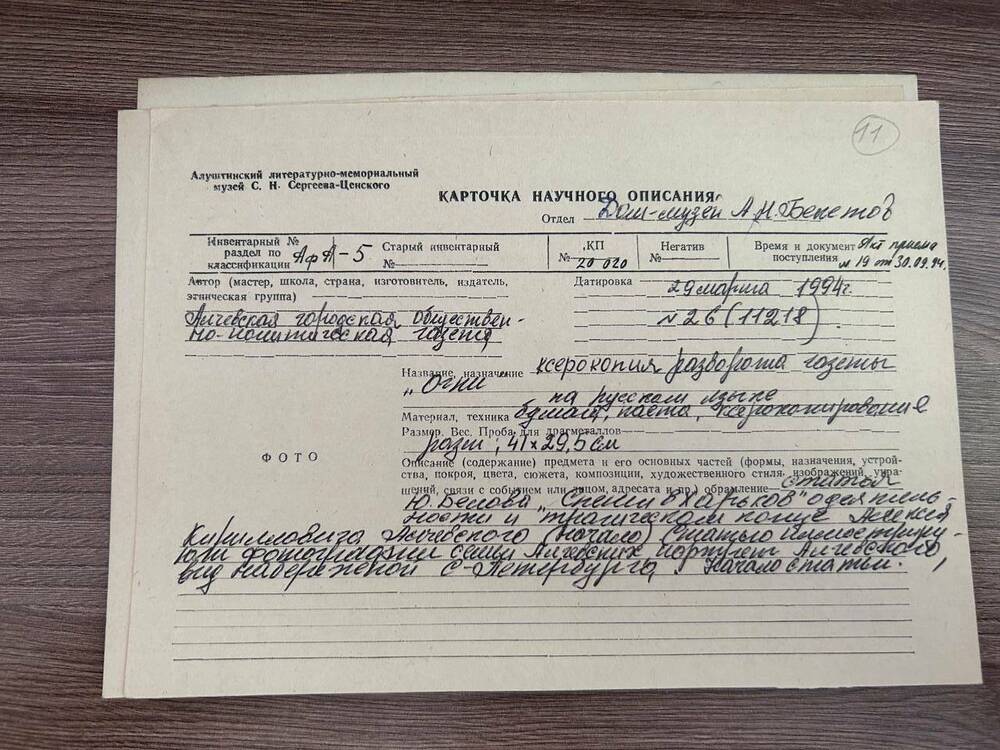 11
Алуштинский литературно-мемориальный
музей С. Н. Сергеева-Ценского
КАРТОЧКА НАУЧНОГО ОПИСАНИЯ
Отдел Дом-музей А.Н.Бекетов
Инвентарный № раздел по классификации АфА-5
Старый инвентарный №
КП № 20 020
Негатив №
Время и документ поступления Акт приема № 19 от 30.09.94.
Автор (мастер, школа, страна, изготовитель, издатель,
этническая группа)
Алчевская городская обществен-
но-политическая газета
Датировка 29 марта 1994г.
№ 26 (11218)
Название, назначение ксерокопия разворота газеты
"Огни"
на русском языке
Материал, техника бумага, паста, ксерокопирование
Размер. Вес. Проба для драгметаллов
разм; 41х29,5 см
ФОТО
Описание (содержание) предмета и его основных частей (формы, назначения, устрой-
ства, покроя, цвета, сюжета, композиции, художественного стиля, изображений, укра-
шений, связи с событием или лицом, адресата и пр.) обрамление статья
Ю.Белова "Спеши в Харьков" о деятель-
ности и трагическом конце Алексея
Кирилловича Алчевского (начало) Статью иллюстриру-
ют фотографии семьи Алчевских портрет Алчевского,
вид набережной С-Петербурга. Начало статьи.